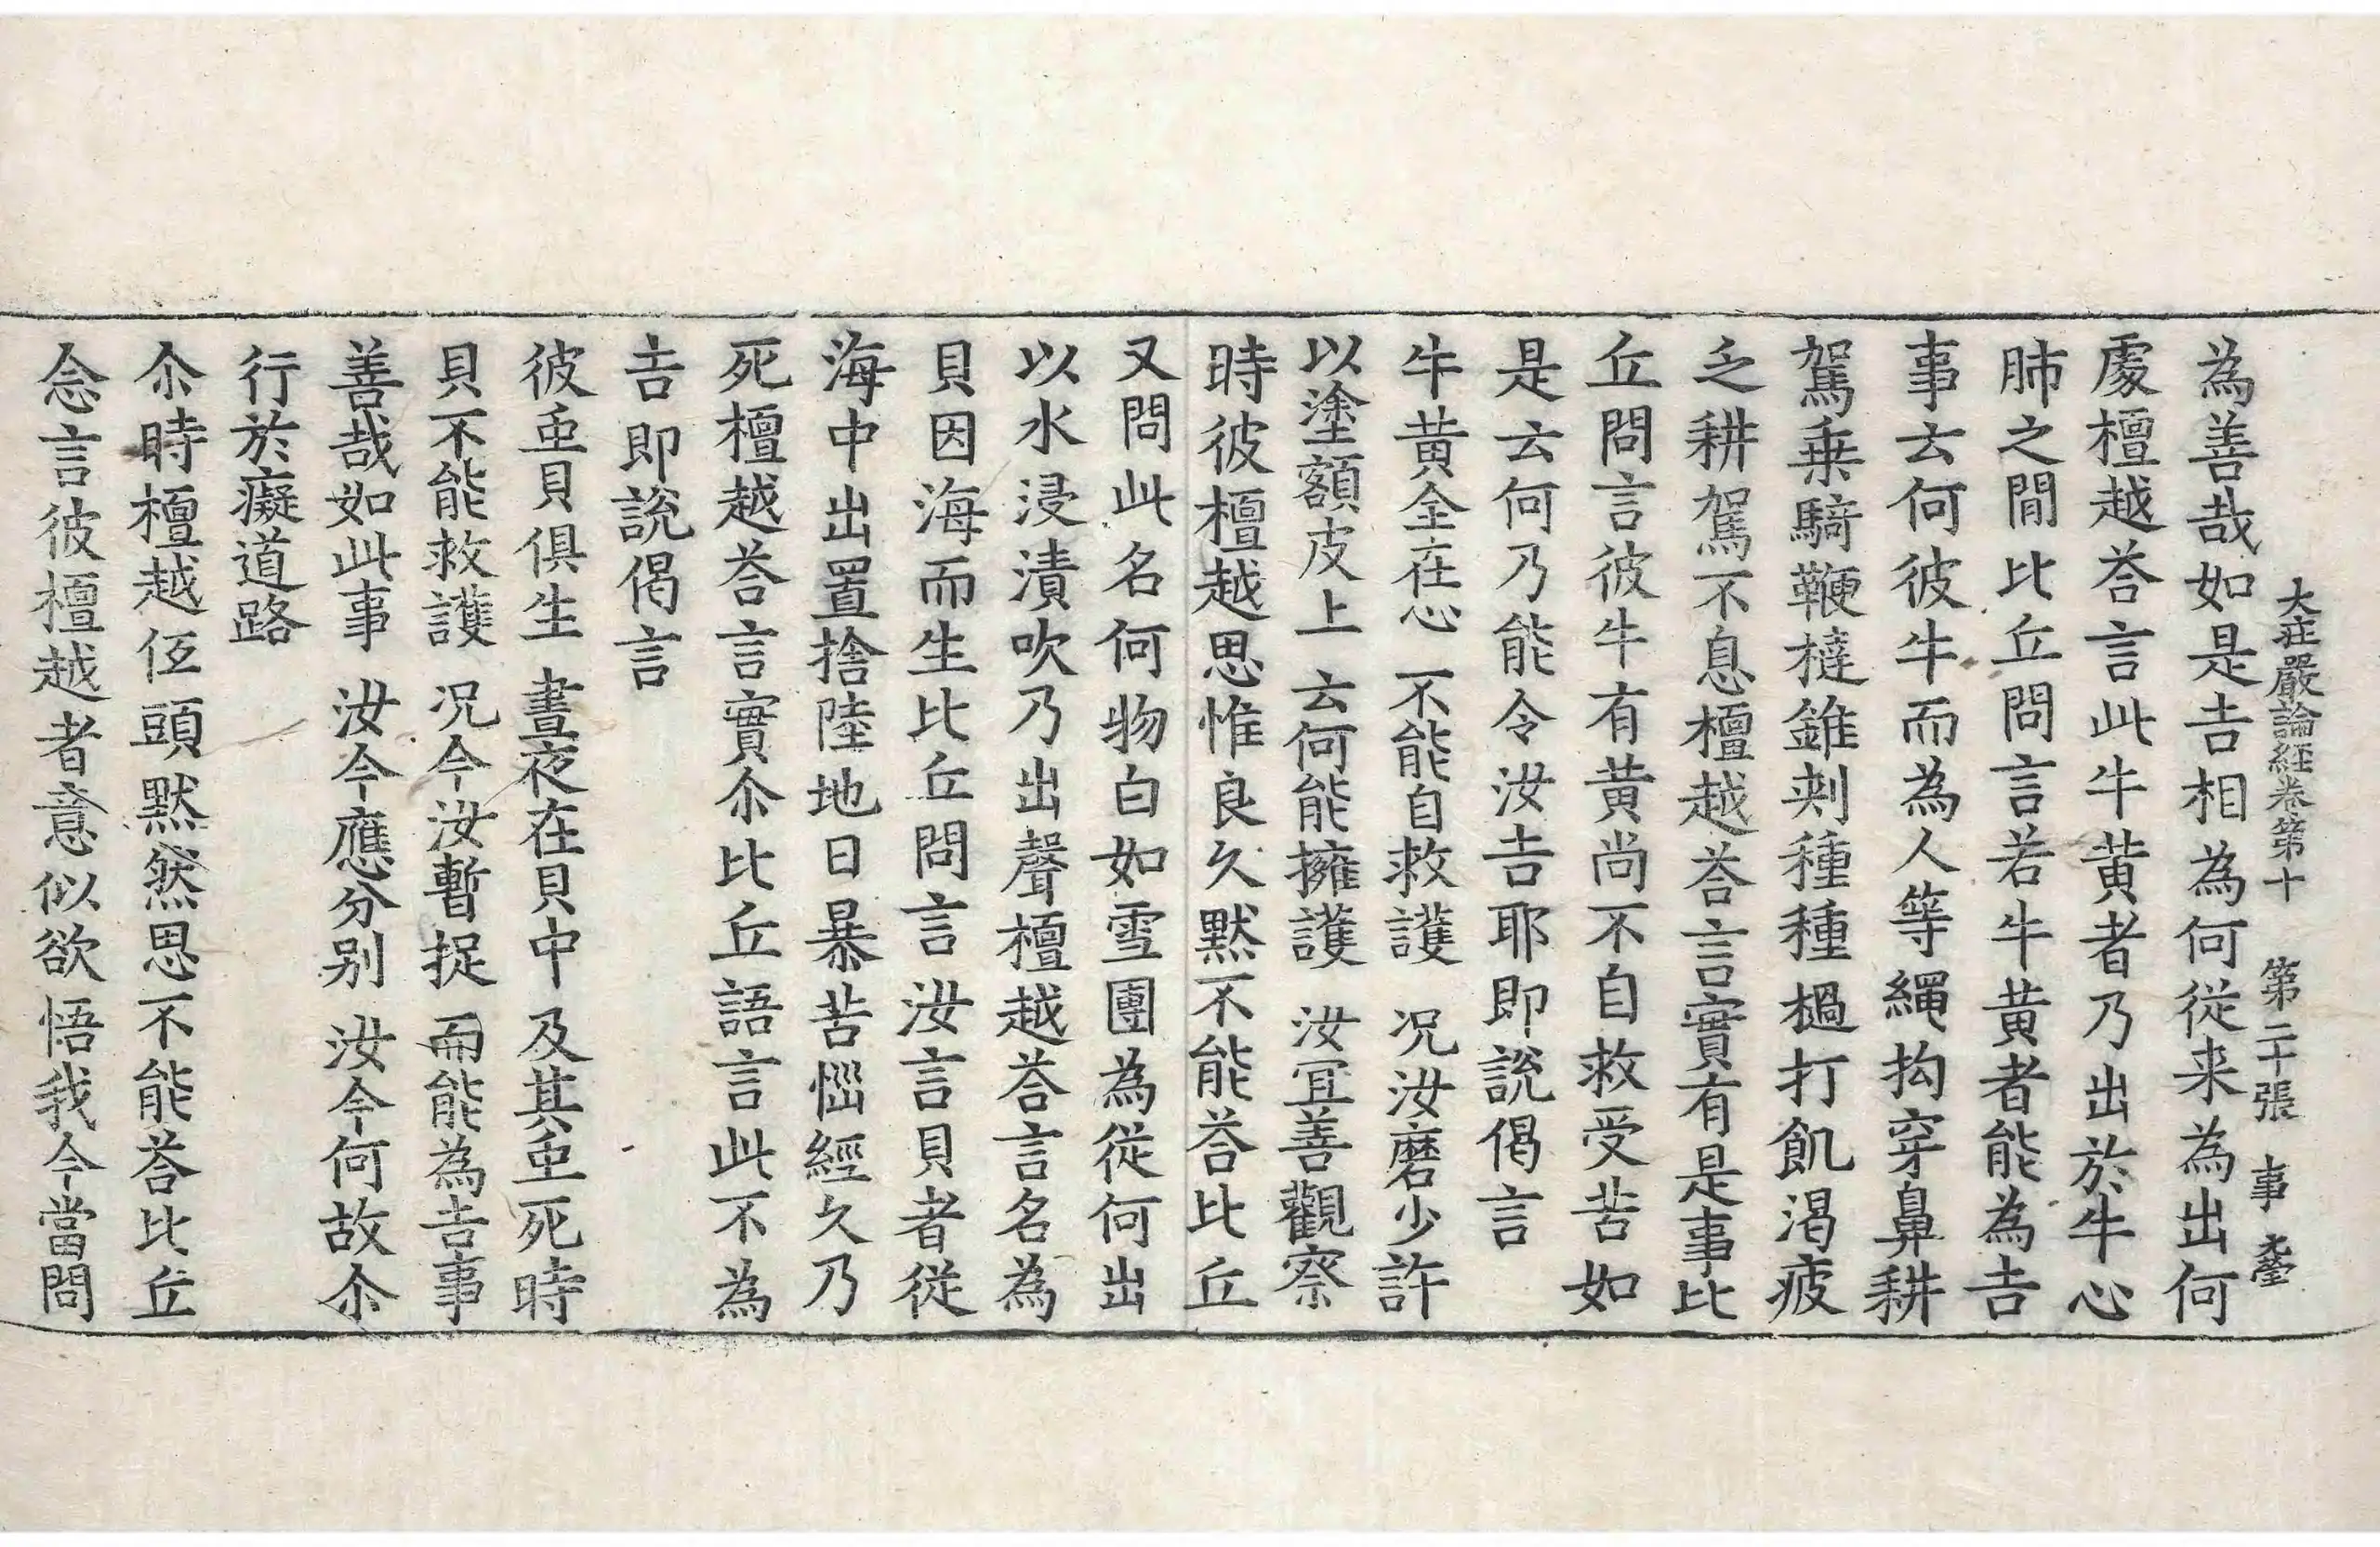 大荘嚴論經卷第十 第二十張 事
為善哉如是吉相為何從来為出何
處檀越荅言此牛黄者乃出於牛心
肺之閒比丘問言若牛黄者能為吉
事云何彼牛而為人等䋲拘穿鼻耕
駕乗騎鞭撻錐刾種種檛打飢渴疲
乏耕駕不息檀越荅言實有是事比
丘問言彼牛有黄尚不自救受苦如
是云何乃能令汝吉耶即說偈言
牛黄全在心 不能自救護 况汝磨少許
以塗額皮上 云何能擁護 汝冝善觀察
時彼檀越思惟良久默不能荅比丘
又問此名何物白如雪團為從何出
以水浸漬吹乃出聲檀越荅言名為
貝因海而生比丘問言汝言貝者從
海中出置捨陸地日暴苦惱經久乃
死檀越荅言實尒比丘語言此不為
吉即說偈言
彼䖝貝俱生 晝夜在貝中 及其䖝死時
貝不能救護 况今汝暫捉 而能為吉事
善哉如此事 汝今應分别 汝今何故尒
行於癡道路
尒時檀越伍頭默然思不能荅比丘
念言彼檀越者意似欲悟我今當問